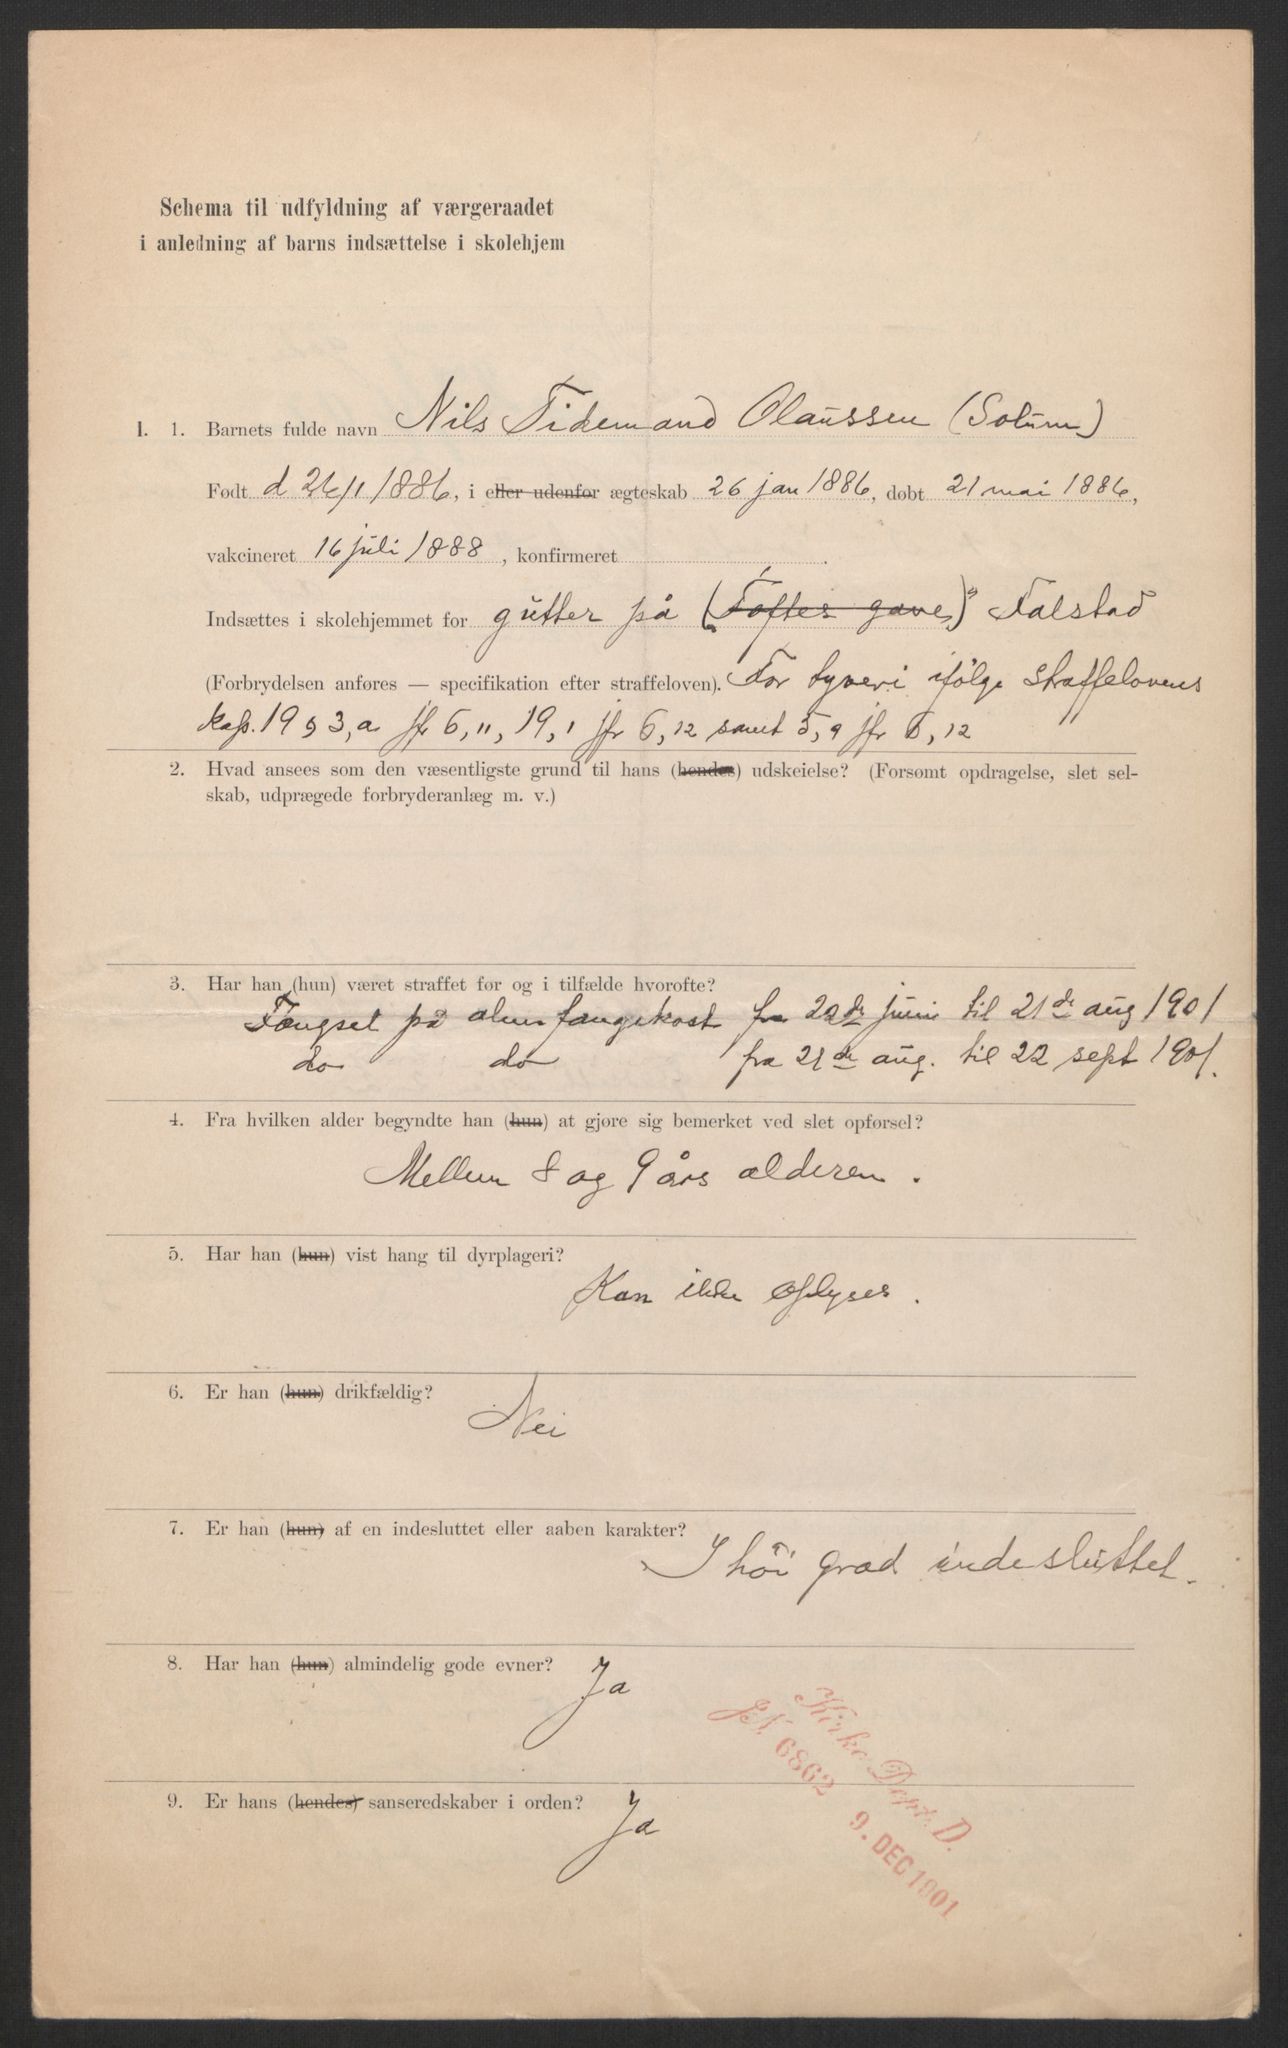 Schema til udfyldning af værgeraadet
i anledning af barns indsættelse i skolehjem
I. 1. Barnets fulde navn Nils Tidemand Olaussen (Solum)
Født d 26/1 1886, i eller udenfor ægteskab 26 jan 1886, døbt 21 mai 1886,
vakcineret 16 juli 1888, konfirmeret
Indsættes i skolehjemmet for gutter på (Toftes gave) Falstad
(Forbrydelsen anføres — specifikation efter straffeloven). For tyveri ifølge straffelovens
kap. 19 § 3, a jfr 6, 11, 19, 1 jfr 6, 12 samt 5, 9 jfr 6, 12
2. Hvad ansees som den væsentligste grund til hans (hendes) udskeielse? (Forsømt opdragelse, slet sel-
skab, udprægede forbryderanlæg m. v.)
3. Har han (hun) været straffet før og i tilfælde hvorofte?
Fængsel på alm fangekost fra 22de juni til 21de aug 1901
do do fra 21de aug. til 22 sept 1901.
4. Fra hvilken alder begyndte han (hun) at gjøre sig bemerket ved slet opførsel?
Mellem 8 og 9 års alderen.
5. Har han (hun) vist hang til dyrplageri?
Kan ikke oplyses.
6. Er han (hun) drikfældig?
Nei
7. Er han (hun) af en indesluttet eller aaben karakter?
I höi grad indesluttet.
8. Har han (hun) almindelig gode evner?
Ja
Kirke Dept. D.
JN. 6862
9. DEC 1901
9. Er hans (hendes) sanseredskaber i orden?
Ja